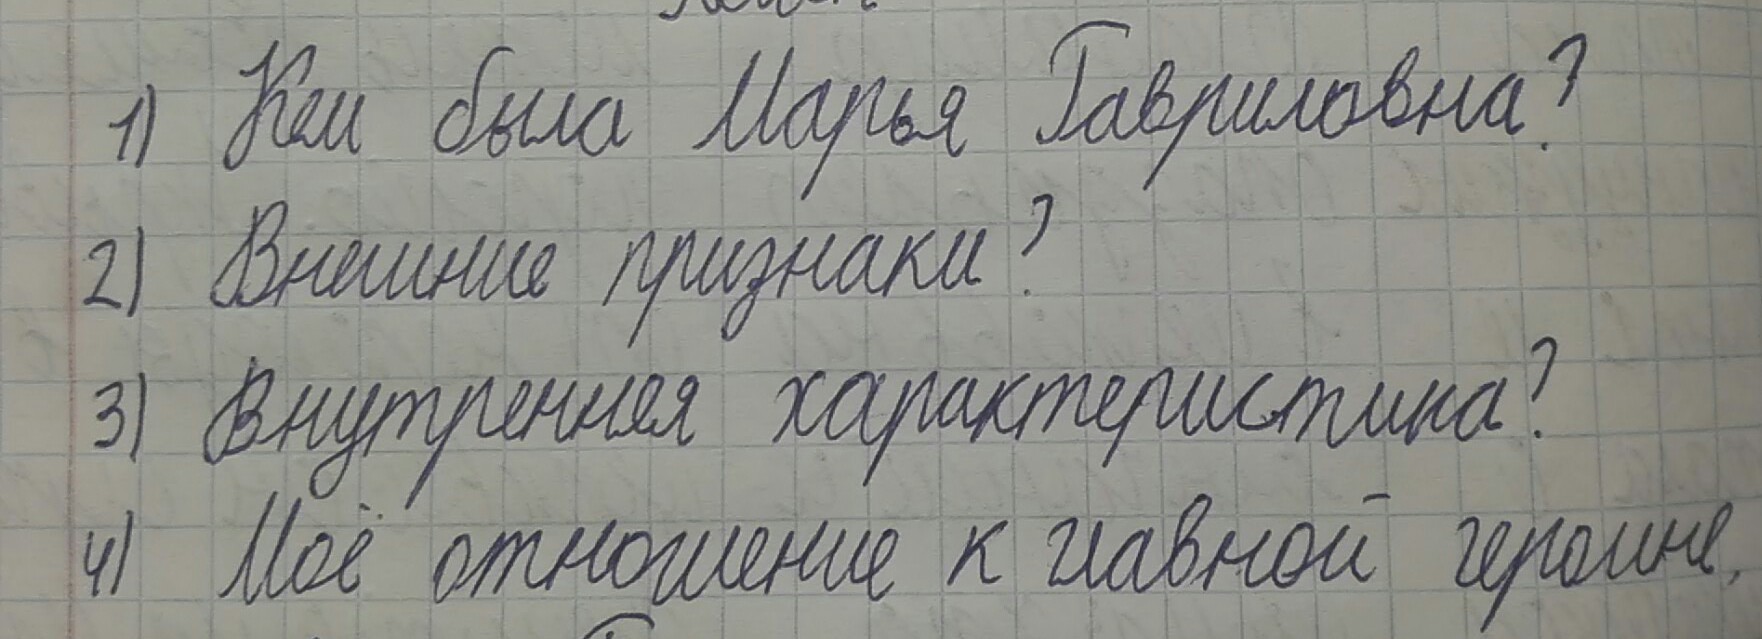 1) Кем была Марья Гавриловна?
2) Внешние признаки?
3) Внутренняя характеристика?
4) Моё отношение к главной героине.